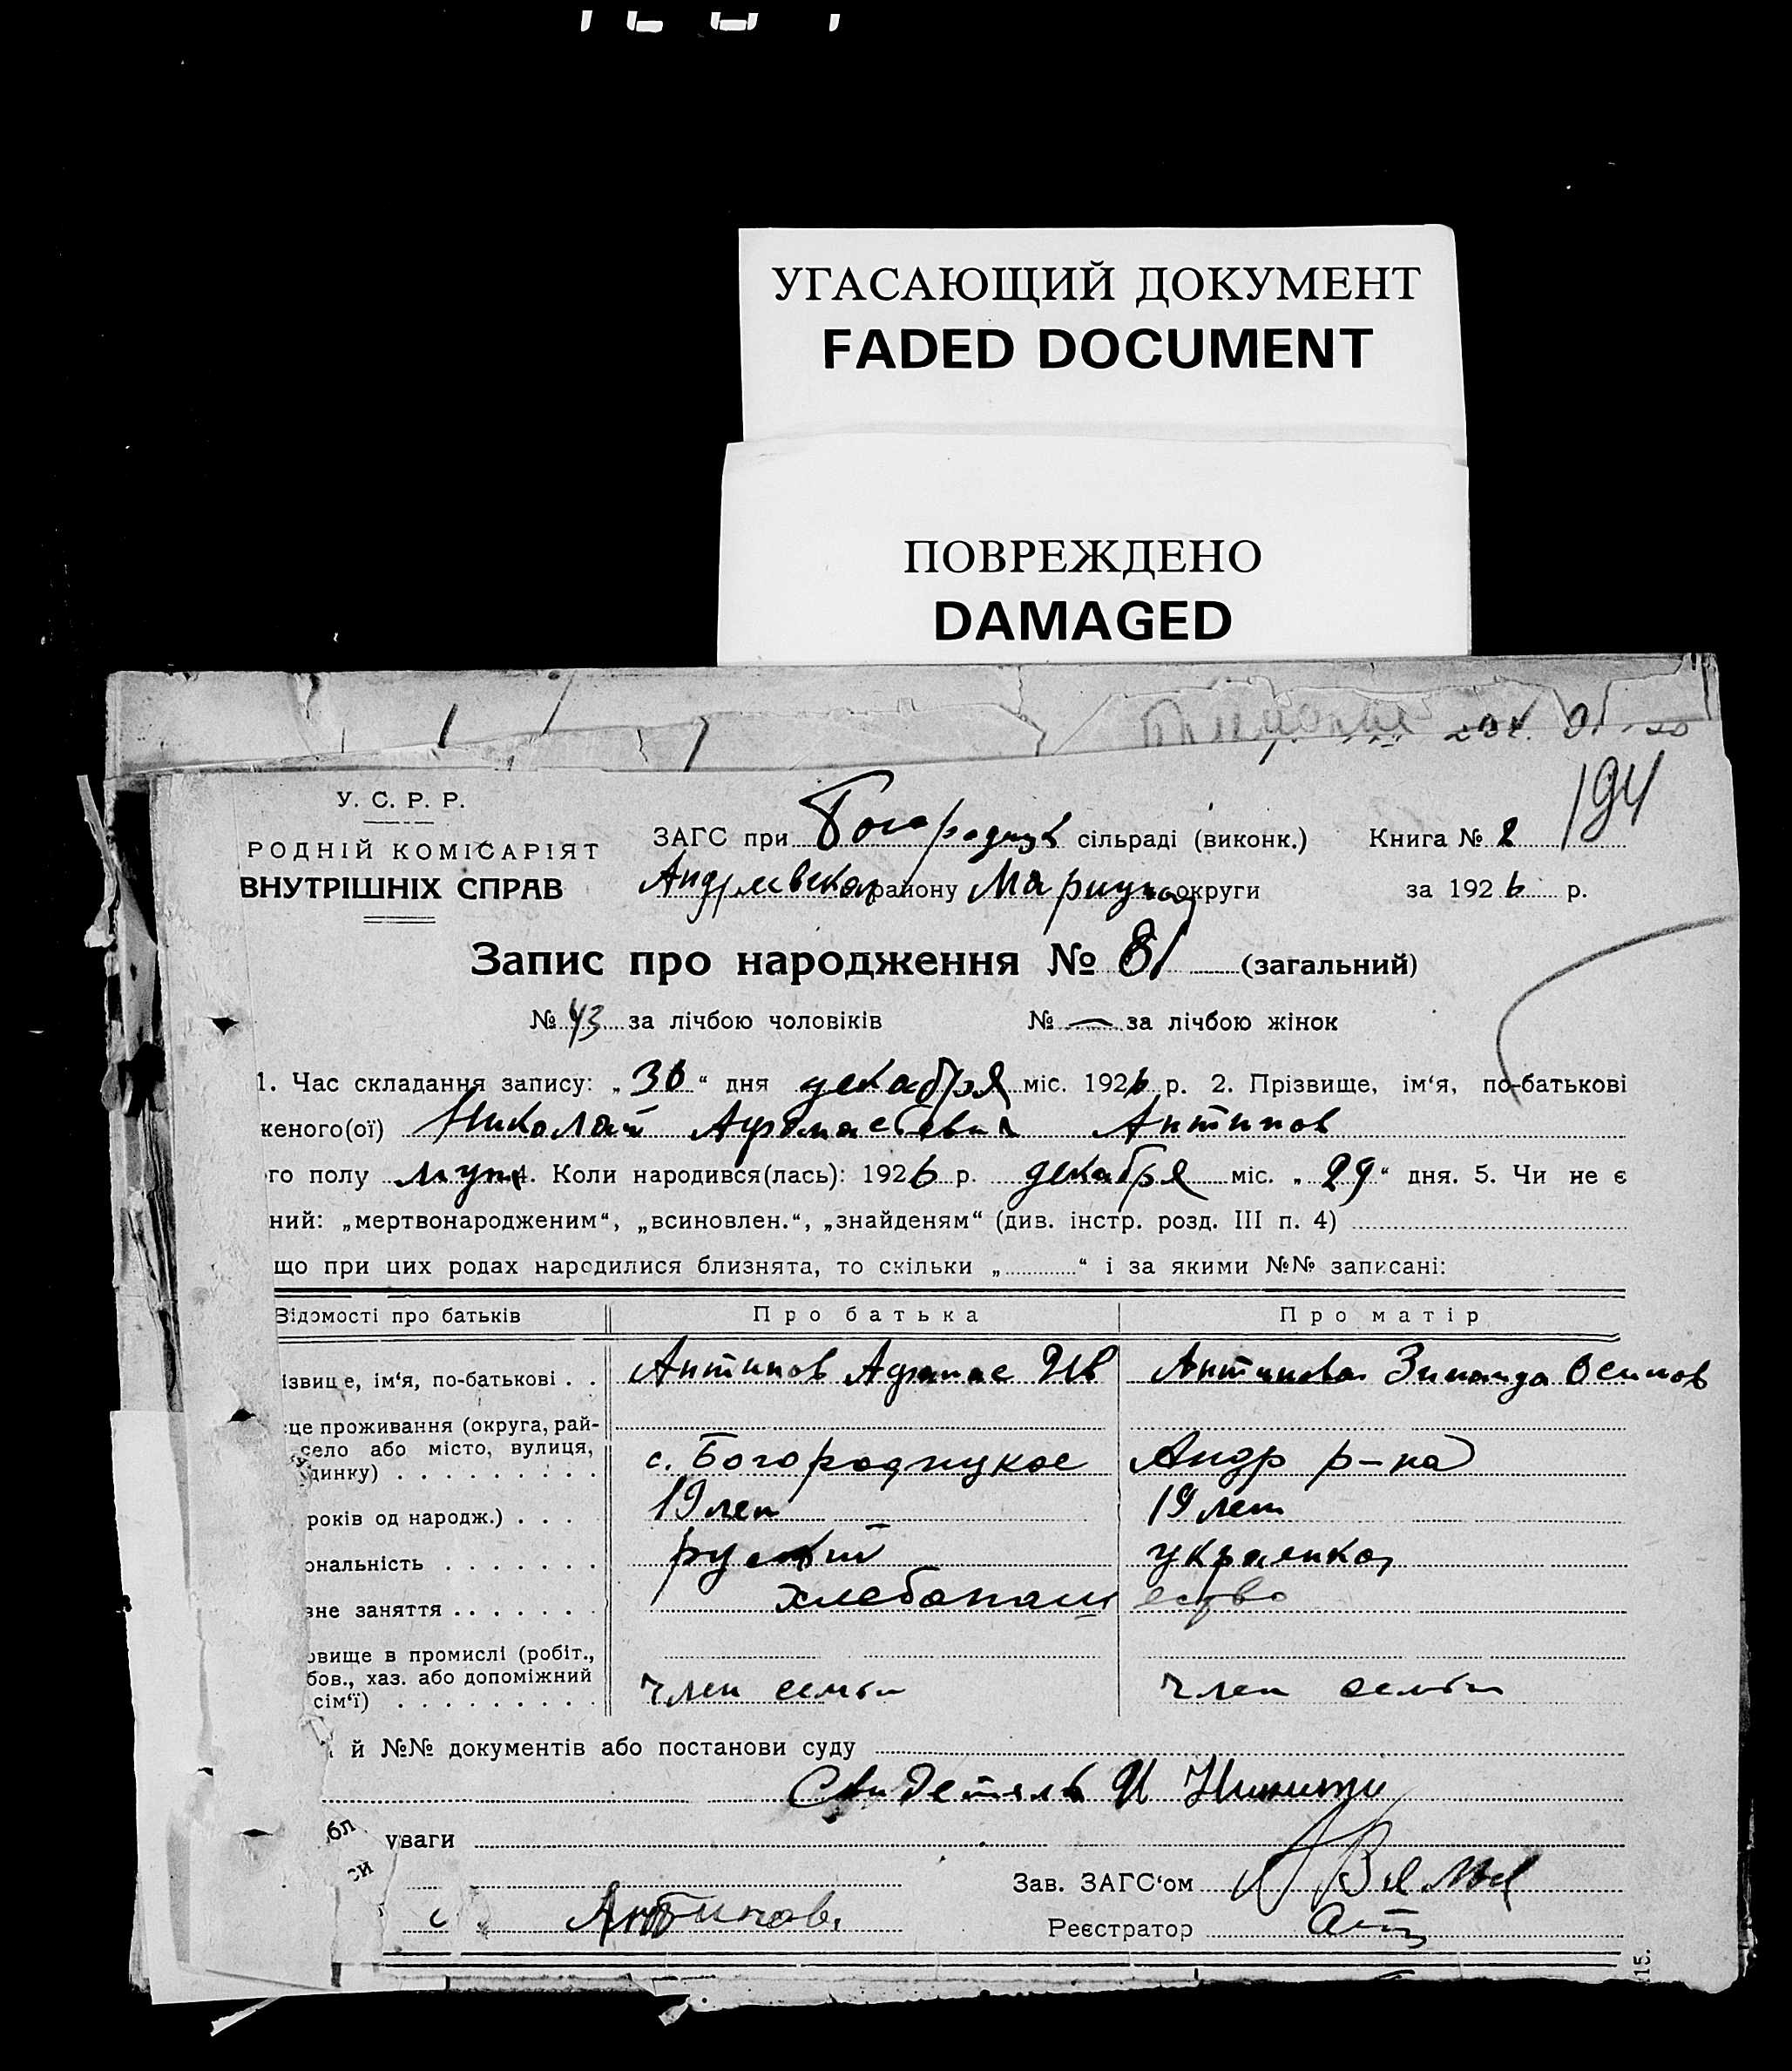 УГАСАЮЩИЙ ДОКУМЕНТ
FADED DOCUMENT
ПОВРЕЖДЕНО
DAMAGED
194
У. С. Р. Р.
РОДНІЙ КОМІСАРІЯТ
ВНУТРІШНІХ СПРАВ
ЗАГС при Богородицк сільраді (виконк.) Книга № 2
району Мариуп округи за 1926 р.
Запис про народження № 81 (загальний)
№ 43 за лічбою чоловіків № — за лічбою жінок
1. Час складання запису: „30“ дня декабря міс. 1926 р. 2. Прізвище, ім‘я, по-батькові
женого(ої) Николай Афанасьевич Антипов
го полу муж 4. Коли народився(лась): 1926 р. декабря міс. „29“ дня. 5. Чи не є
ний: „мертвонародженим“, „всиновлен.“, „знайденям“ (див. інстр. розд. III п. 4)
що при цих родах народилися близнята, то скільки „ “ і за якими №№ записані:
Відомості про батьків Про батька Про матір
ізвище, ім‘я, по-батькові . . Антипов Афанас Ив Антипова Зинаида Осипов
це проживання (округа, рай-
село або місто, вулиця,
динку) . . . . . . . . . с. Богородицкое Андр р-на
років од народж.) . . . 19 лет 19 лет
ональність . . . . . . . руский украинка
вне заняття . . . . . . хлебопаш ество
овище в промислі (робіт.,
бов., хаз. або допоміжний
сім‘ї) . . . . . . . . . член семьи член семьи
й №№ документів або постанови суду
Свидетель И
уваги
Зав. ЗАГС‘ом
Антипов
Реєстратор
15.